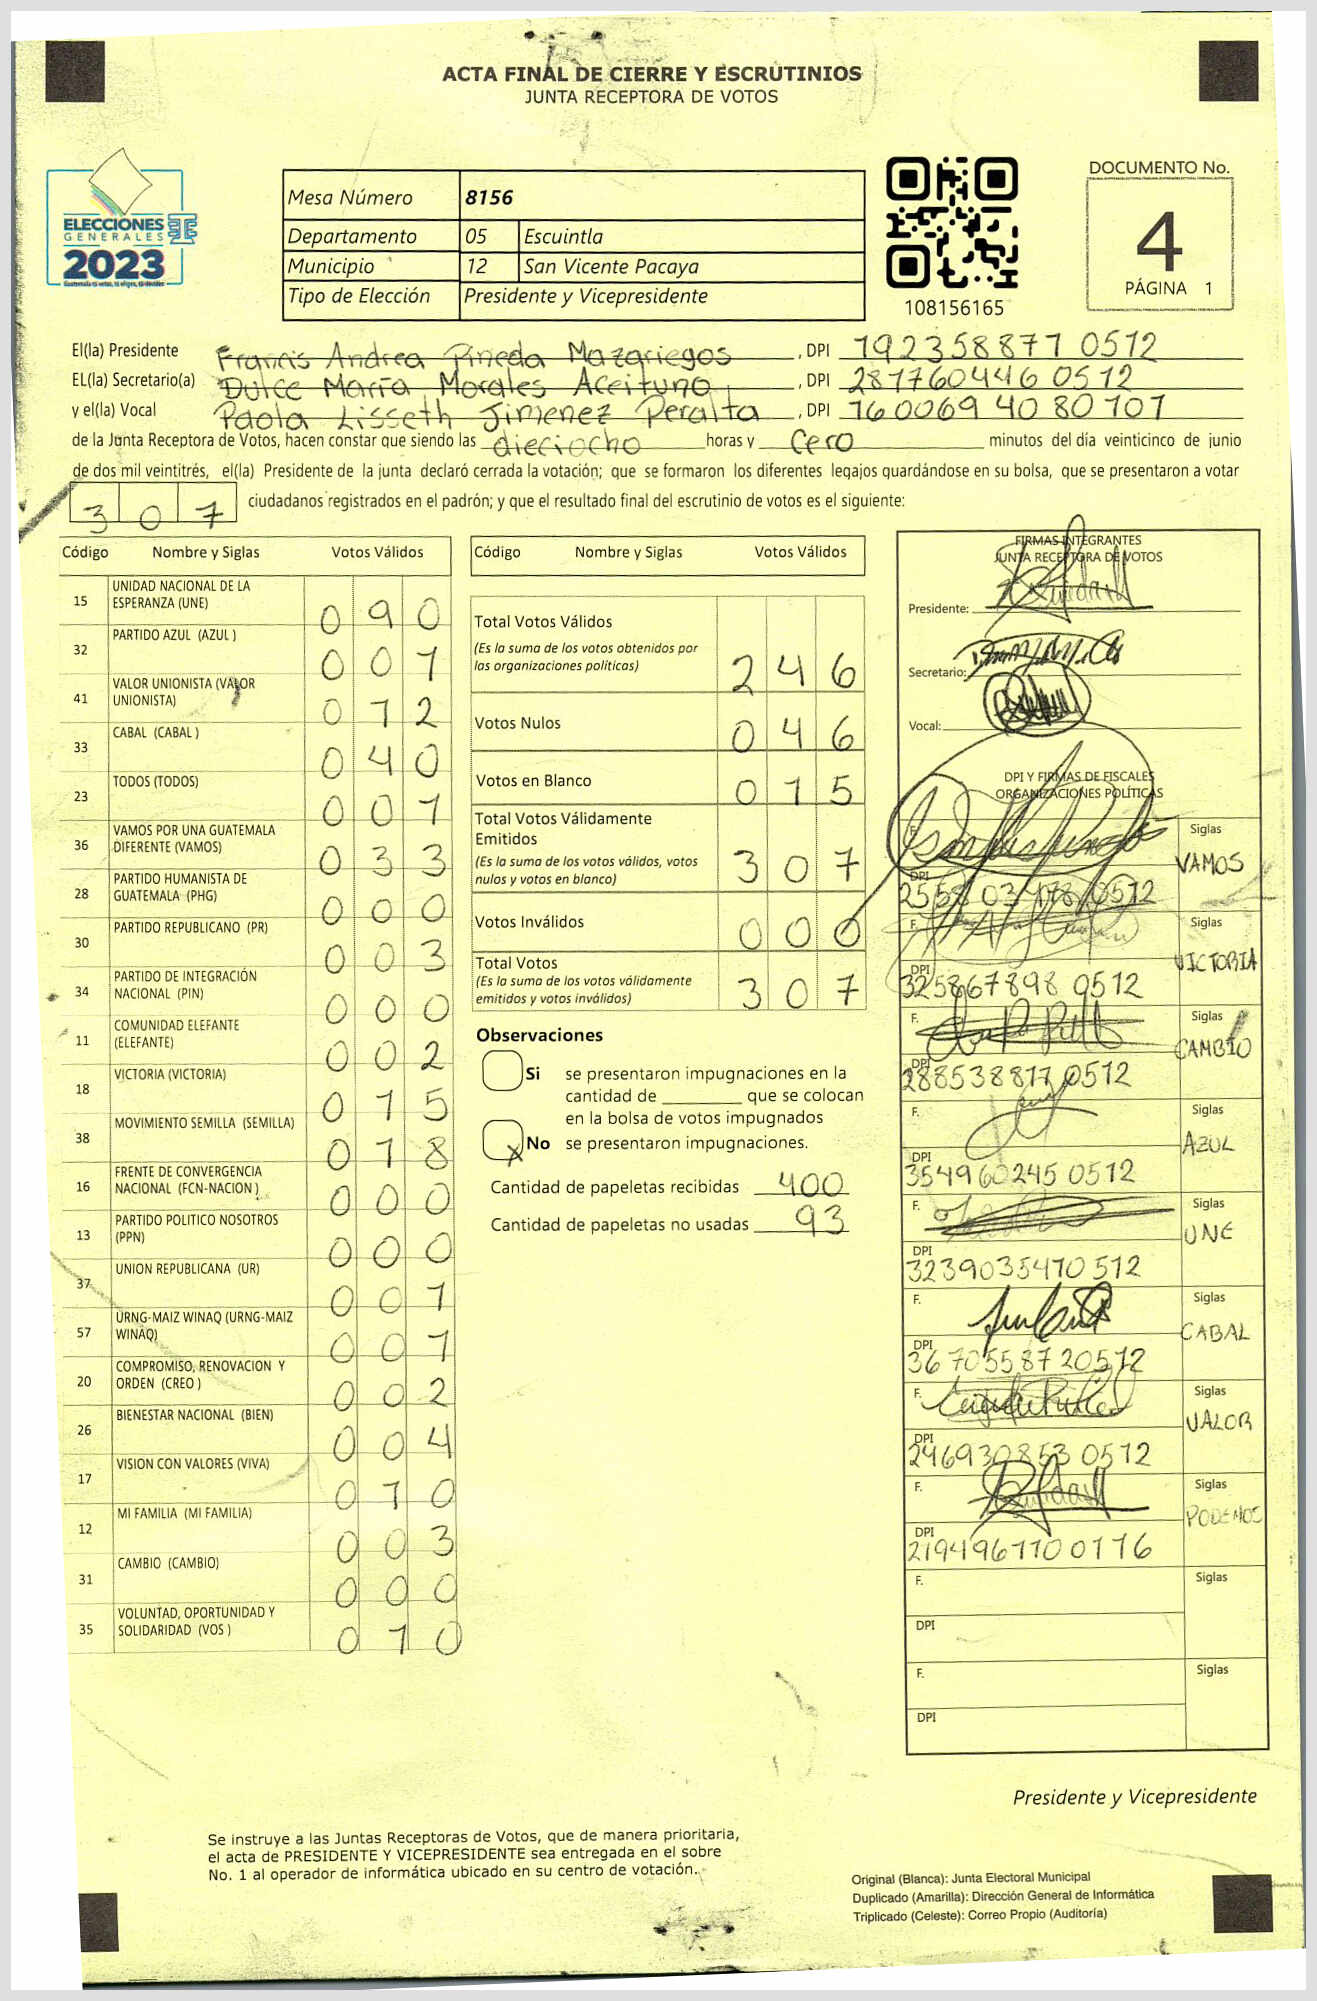 ACTA FINAL DE CIERRE Y ESCRUTINIOS
JUNTA RECEPTORA DE VOTOS
ELECCIONES
GENERALES
2023
Mesa Número 8156
Departamento 05 Escuintla
Municipio 12 San Vicente Pacaya
Tipo de Elección Presidente y Vicepresidente
108156165
DOCUMENTO No.
4
PÁGINA 1
El(la) Presidente Francis Andrea Pineda Mazariegos, DPI 192358877 0512
EL(la) Secretario(a) Dulce María Morales Aceituno, DPI 281760446 0512
y el(la) Vocal Paola Lisseth Jimenez Peralta, DPI 160069 40 80101
de la Junta Receptora de Votos, hacen constar que siendo las dieciocho horas y cero minutos del día veinticinco de junio
de dos mil veintitrés, el(la) Presidente de la junta declaró cerrada la votación; que se formaron los diferentes legajos guardándose en su bolsa, que se presentaron a votar
307 ciudadanos registrados en el padrón; y que el resultado final del escrutinio de votos es el siguiente:
Código Nombre y Siglas Votos Válidos
15 UNIDAD NACIONAL DE LA ESPERANZA (UNE) 090
32 PARTIDO AZUL (AZUL ) 001
41 VALOR UNIONISTA (VALOR UNIONISTA) 012
33 CABAL (CABAL ) 040
23 TODOS (TODOS) 001
36 VAMOS POR UNA GUATEMALA DIFERENTE (VAMOS) 033
28 PARTIDO HUMANISTA DE GUATEMALA (PHG) 000
30 PARTIDO REPUBLICANO (PR) 003
34 PARTIDO DE INTEGRACIÓN NACIONAL (PIN) 000
11 COMUNIDAD ELEFANTE (ELEFANTE) 002
18 VICTORIA (VICTORIA) 015
38 MOVIMIENTO SEMILLA (SEMILLA) 018
16 FRENTE DE CONVERGENCIA NACIONAL (FCN-NACION ) 000
13 PARTIDO POLITICO NOSOTROS (PPN) 000
37 UNION REPUBLICANA (UR) 001
57 URNG-MAIZ WINAQ (URNG-MAIZ WINAQ) 001
20 COMPROMISO, RENOVACION Y ORDEN (CREO ) 002
26 BIENESTAR NACIONAL (BIEN) 004
17 VISION CON VALORES (VIVA) 010
12 MI FAMILIA (MI FAMILIA) 003
31 CAMBIO (CAMBIO) 000
35 VOLUNTAD, OPORTUNIDAD Y SOLIDARIDAD (VOS ) 010
Código Nombre y Siglas Votos Válidos
Total Votos Válidos 246
(Es la suma de los votos obtenidos por
las organizaciones políticas)
Votos Nulos 046
Votos en Blanco 015
Total Votos Válidamente
Emitidos 307
(Es la suma de los votos válidos, votos
nulos y votos en blanco)
Votos Inválidos 000
Total Votos 307
(Es la suma de los votos válidamente
emitidos y votos inválidos)
Observaciones
Si se presentaron impugnaciones en la
cantidad de ________ que se colocan
en la bolsa de votos impugnados
X No se presentaron impugnaciones.
Cantidad de papeletas recibidas 400
Cantidad de papeletas no usadas 93
FIRMAS INTEGRANTES
JUNTA RECEPTORA DE VOTOS
Presidente:
Secretario:
Vocal:
DPI Y FIRMAS DE FISCALES
ORGANIZACIONES POLÍTICAS
F. Siglas VAMOS
DPI 2558 03478 0512
F. Siglas VICTORIA
DPI 325867898 0512
F. Siglas CAMBIO
DPI 288538817 0512
F. Siglas AZUL
DPI 354960245 0512
F. Siglas UNE
DPI 3239035470512
F. Siglas CABAL
DPI 3670558720512
F. Siglas VALOR
DPI 246930853 0512
F. Siglas PODEMOS
DPI 219496170 0116
F. Siglas
DPI
F. Siglas
DPI
Presidente y Vicepresidente
Se instruye a las Juntas Receptoras de Votos, que de manera prioritaria,
el acta de PRESIDENTE Y VICEPRESIDENTE sea entregada en el sobre
No. 1 al operador de informática ubicado en su centro de votación.
Original (Blanca): Junta Electoral Municipal
Duplicado (Amarilla): Dirección General de Informática
Triplicado (Celeste): Correo Propio (Auditoría)